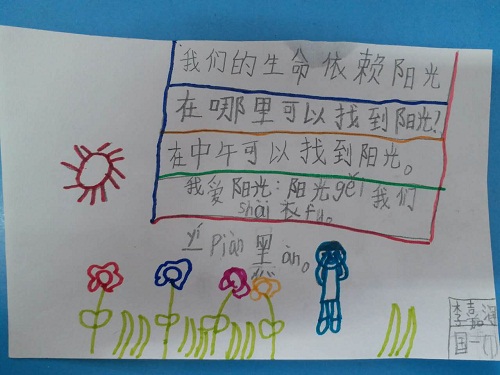 我们的生命依赖阳光
在哪里可以找到阳光!
在中午可以找到阳光。
我爱阳光:阳光gěi我们
shài衣fu。
一yí piàn里àn。
李嘉
国一(1)